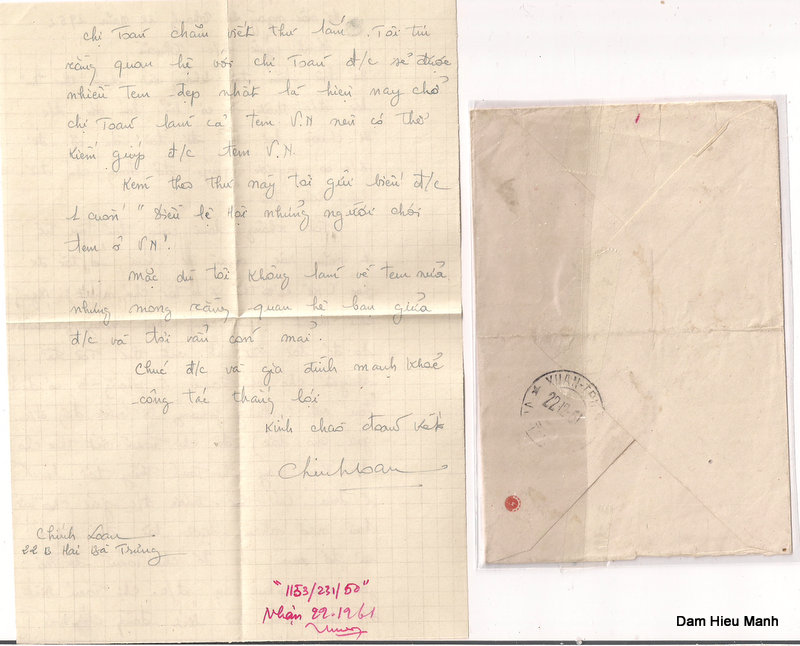 chị Toàn chăm viết thư lắm. Tôi tin
rằng quan hệ với chị Toàn đ/c sẽ được
nhiều tem đẹp nhất là hiện nay chở
chị Toàn làm cả tem V.N nên có thể
kiếm giúp đ/c tem V.N.
Kèm theo thư này tôi gửi biếu đ/c
1 cuốn "Điều lệ Hội những người chơi
tem ở V.N".
Mặc dù tôi không làm về tem nửa
nhưng mong rằng quan hệ bạn giửa
đ/c và tôi vẩn còn mãi.
Chúc đ/c và gia đình mạnh khoẻ
công tác thắng lợi
Kính chào đoàn kết
Chinhloan
Chính Loan
22B Hai Bà Trưng
"1153/231/50"
Nhận 22-1961
XUAN-
22
Dam Hieu Manh